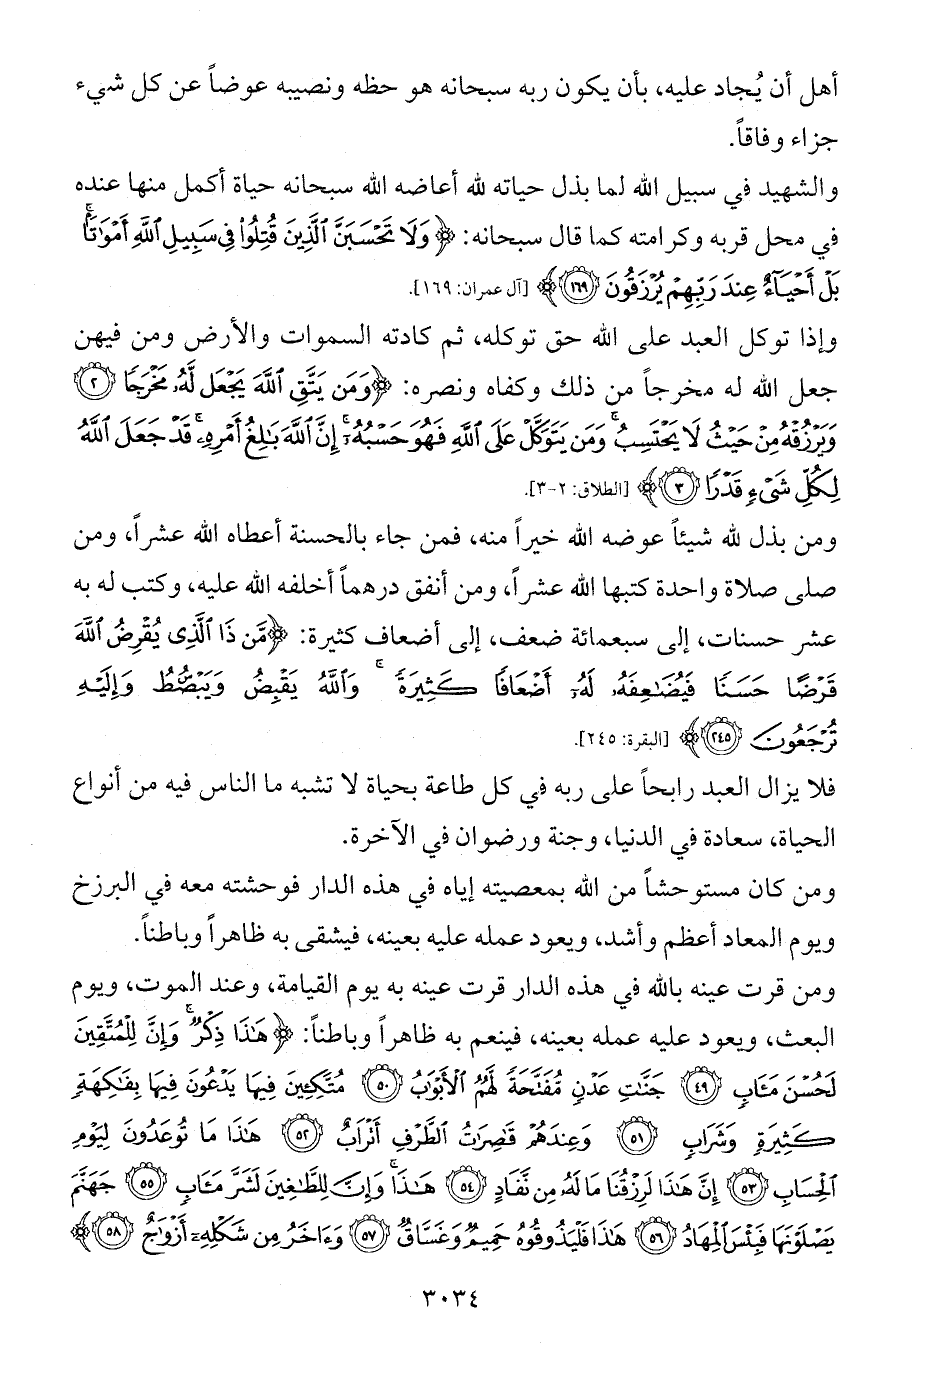 أهل أن يُجاد عليه، بأن يكون ربه سبحانه هو حظه ونصيبه عوضاً عن كل شيء
جزاء وفاقاً.
والشهيد في سبيل الله لما بذل حياته لله أعاضه الله سبحانه حياة أكمل منها عنده
في محل قربه وكرامته كما قال سبحانه: ﴿وَلَا تَحْسَبَنَّ ٱلَّذِينَ قُتِلُوا۟ فِى سَبِيلِ ٱللَّهِ أَمْوَٰتًۢا ۚ
بَلْ أَحْيَآءٌ عِندَ رَبِّهِمْ يُرْزَقُونَ ١٦٩﴾ [آل عمران: ١٦٩].
وإذا توكل العبد على الله حق توكله، ثم كادته السموات والأرض ومن فيهن
جعل الله له مخرجاً من ذلك وكفاه ونصره: ﴿وَمَن يَتَّقِ ٱللَّهَ يَجْعَل لَّهُۥ مَخْرَجًا ٢
وَيَرْزُقْهُ مِنْ حَيْثُ لَا يَحْتَسِبُ ۚ وَمَن يَتَوَكَّلْ عَلَى ٱللَّهِ فَهُوَ حَسْبُهُۥٓ ۚ إِنَّ ٱللَّهَ بَٰلِغُ أَمْرِهِۦ ۚ قَدْ جَعَلَ ٱللَّهُ
لِكُلِّ شَىْءٍ قَدْرًا ٣﴾ [الطلاق: ٢-٣].
ومن بذل لله شيئاً عوضه الله خيراً منه، فمن جاء بالحسنة أعطاه الله عشراً، ومن
صلى صلاة واحدة كتبها الله عشراً، ومن أنفق درهماً أخلفه الله عليه، وكتب له به
عشر حسنات، إلى سبعمائة ضعف، إلى أضعاف كثيرة: ﴿مَّن ذَا ٱلَّذِى يُقْرِضُ ٱللَّهَ
قَرْضًا حَسَنًا فَيُضَٰعِفَهُۥ لَهُۥٓ أَضْعَافًا كَثِيرَةً ۚ وَٱللَّهُ يَقْبِضُ وَيَبْصُۜطُ وَإِلَيْهِ
تُرْجَعُونَ ٢٤٥﴾ [البقرة: ٢٤٥].
فلا يزال العبد رابحاً على ربه في كل طاعة بحياة لا تشبه ما الناس فيه من أنواع
الحياة، سعادة في الدنيا، وجنة ورضوان في الآخرة.
ومن كان مستوحشاً من الله بمعصيته إياه في هذه الدار فوحشته معه في البرزخ
ويوم المعاد أعظم وأشد، ويعود عمله عليه بعينه، فيشقى به ظاهراً وباطناً.
ومن قرت عينه بالله في هذه الدار قرت عينه به يوم القيامة، وعند الموت، ويوم
البعث، ويعود عليه عمله بعينه، فينعم به ظاهراً وباطناً: ﴿هَٰذَا ذِكْرٌ ۚ وَإِنَّ لِلْمُتَّقِينَ
لَحُسْنَ مَـَٔابٍ ٤٩ جَنَّٰتِ عَدْنٍ مُّفَتَّحَةً لَّهُمُ ٱلْأَبْوَٰبُ ٥٠ مُتَّكِـِٔينَ فِيهَا يَدْعُونَ فِيهَا بِفَٰكِهَةٍ
كَثِيرَةٍ وَشَرَابٍ ٥١ وَعِندَهُمْ قَٰصِرَٰتُ ٱلطَّرْفِ أَتْرَابٌ ٥٢ هَٰذَا مَا تُوعَدُونَ لِيَوْمِ
ٱلْحِسَابِ ٥٣ إِنَّ هَٰذَا لَرِزْقُنَا مَا لَهُۥ مِن نَّفَادٍ ٥٤ هَٰذَا ۚ وَإِنَّ لِلطَّٰغِينَ لَشَرَّ مَـَٔابٍ ٥٥ جَهَنَّمَ
يَصْلَوْنَهَا فَبِئْسَ ٱلْمِهَادُ ٥٦ هَٰذَا فَلْيَذُوقُوهُ حَمِيمٌ وَغَسَّاقٌ ٥٧ وَءَاخَرُ مِن شَكْلِهِۦٓ أَزْوَٰجٌ ٥٨﴾
٣٠٣٤